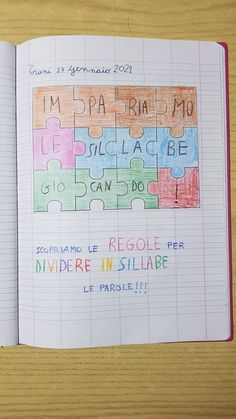 Trani 27 Gennaio 2021
IM PA RIA MO
LE SIL LAC BE
GIO CAN DO !
SCOPRIAMO LE REGOLE PER
DIVIDERE IN SILLABE
LE PAROLE!!!